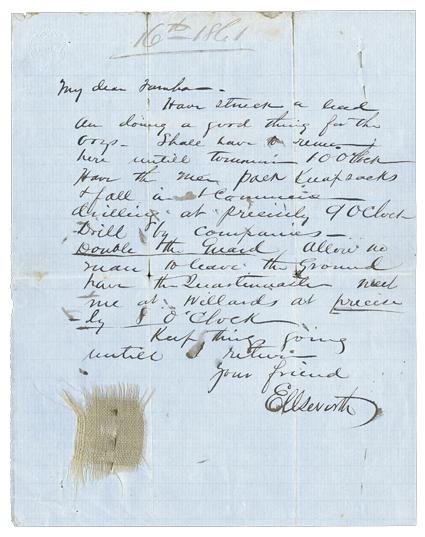 16th 1861
My dear Farnham -
Have struck a lead
am doing a good thing for the
boys - Shall have to remain
here untill tomorrow 10 O'Clock
Have the men pack Knapsacks
& fall in & Commence
drilling at precisely 9 O'Clock
Drill by companies -
Double the Guard Allow no
man to leave the Ground
have the Quartermaster meet
me at Willards at precise
-ly O'Clock
Keep thing going
untill I return
Your friend
Ellsworth